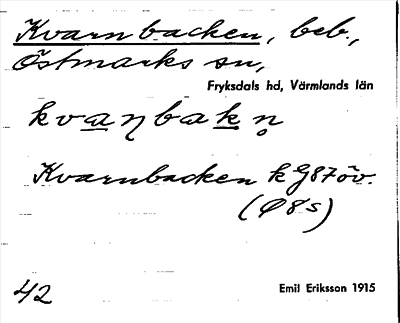 Kvarnbacken, beb.,
Östmarks sn,
Fryksdals hd, Värmlands län
Kvarnbacken k G87öv.
42
Emil Eriksson 1915